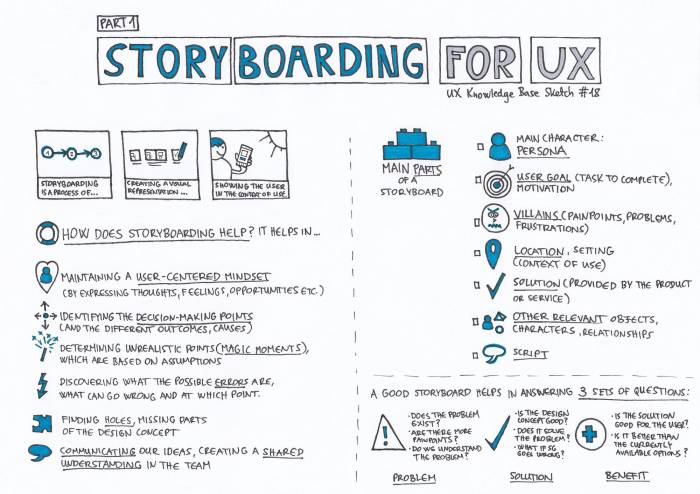 PART 1
STORYBOARDING FOR UX
UX KNOWLEDGE BASE SKETCH #18
1 2 3
STORYBOARDING
IS A PROCESS OF...
CREATING A VISUAL
REPRESENTATION ...
SHOWING THE USER
IN THE CONTEXT OF USE
HOW DOES STORYBOARDING HELP? IT HELPS IN...
MAINTAINING A USER-CENTERED MINDSET
(BY EXPRESSING THOUGHTS, FEELINGS, OPPORTUNITIES ETC.)
IDENTIFYING THE DECISION-MAKING POINTS
(AND THE DIFFERENT OUTCOMES, CAUSES)
DETERMINING UNREALISTIC POINTS (MAGIC MOMENTS),
WHICH ARE BASED ON ASSUMPTIONS
DISCOVERING WHAT THE POSSIBLE ERRORS ARE,
WHAT CAN GO WRONG AND AT WHICH POINT.
FINDING HOLES, MISSING PARTS
OF THE DESIGN CONCEPT
COMMUNICATING OUR IDEAS, CREATING A SHARED
UNDERSTANDING IN THE TEAM
MAIN PARTS
OF A
STORYBOARD
MAIN CHARACTER:
PERSONA
USER GOAL (TASK TO COMPLETE),
MOTIVATION
VILLAINS (PAINPOINTS, PROBLEMS,
FRUSTRATIONS)
LOCATION, SETTING
(CONTEXT OF USE)
SOLUTION (PROVIDED BY THE PRODUCT
OR SERVICE)
OTHER RELEVANT OBJECTS,
CHARACTERS, RELATIONSHIPS
SCRIPT
A GOOD STORYBOARD HELPS IN ANSWERING 3 SETS OF QUESTIONS:
• DOES THE PROBLEM
EXIST?
• ARE THERE MORE
PAINPOINTS?
• DO WE UNDERSTAND
THE PROBLEM?
PROBLEM
• IS THE DESIGN
CONCEPT GOOD?
• DOES IT SOLVE
THE PROBLEM?
• WHAT IF SG
GOES WRONG?
SOLUTION
• IS THE SOLUTION
GOOD FOR THE USER?
• IS IT BETTER THAN
THE CURRENTLY
AVAILABLE OPTIONS?
BENEFIT